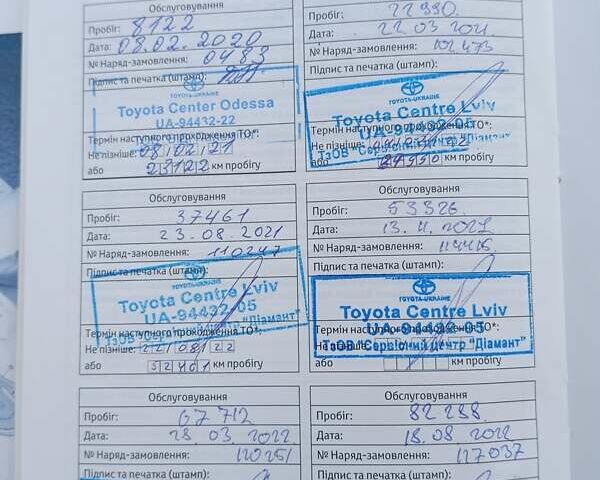 Обслуговування
Пробіг: 8122
Дата: 08.02.2020
№ Наряд-замовлення: 0483
Підпис та печатка (штамп):
TOYOTA-UKRAINE
Toyota Center Odessa
UA-94432-22
Термін наступного проходження ТО*:
Не пізніше: 08 02 21
або 23122 км пробігу
Обслуговування
Пробіг: 22990
Дата: 22 03 2021
№ Наряд-замовлення: 102473
Підпис та печатка (штамп):
TOYOTA-UKRAINE
Toyota Centre Lviv
UA-94432-05
Термін наступного проходження ТО*:
ТзОВ "Сервісний центр "Діамант"
Не пізніше:
або км пробігу
Обслуговування
Пробіг: 37461
Дата: 23.08.2021
№ Наряд-замовлення: 110247
Підпис та печатка (штамп):
TOYOTA-UKRAINE
Toyota Centre Lviv
UA-94432-05
Термін наступного проходження ТО*:
ТзОВ "Сервісний центр "Діамант"
Не пізніше: 22 08 22
або 52461 км пробігу
Обслуговування
Пробіг: 53326
Дата: 13. 11. 2021
№ Наряд-замовлення:
Підпис та печатка (штамп):
TOYOTA-UKRAINE
Toyota Centre Lviv
UA-94432-05
Термін наступного проходження ТО*:
ТзОВ "Сервісний центр "Діамант"
Не пізніше:
або км пробігу
Обслуговування
Пробіг: 67 712
Дата: 28. 03. 2022
№ Наряд-замовлення: 120251
Підпис та печатка (штамп):
Обслуговування
Пробіг: 82 288
Дата: 18.08 2022
№ Наряд-замовлення: 127037
Підпис та печатка (штамп):